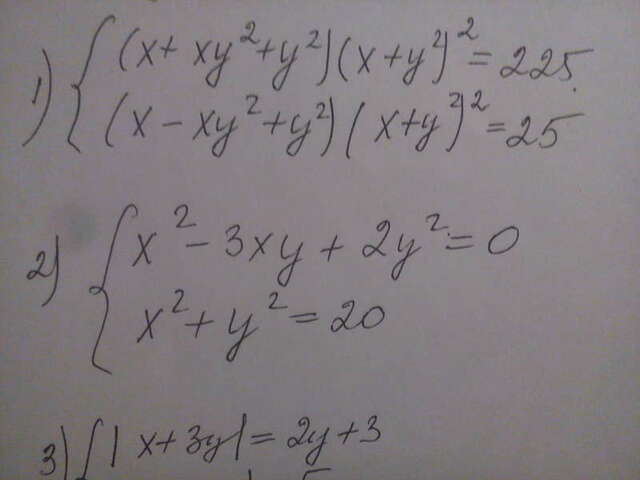 1) { (x + xy² + y²)(x + y²)² = 225
(x - xy² + y²)(x + y²)² = 25
2) { x² - 3xy + 2y² = 0
x² + y² = 20
3) { |x + 3y| = 2y + 3